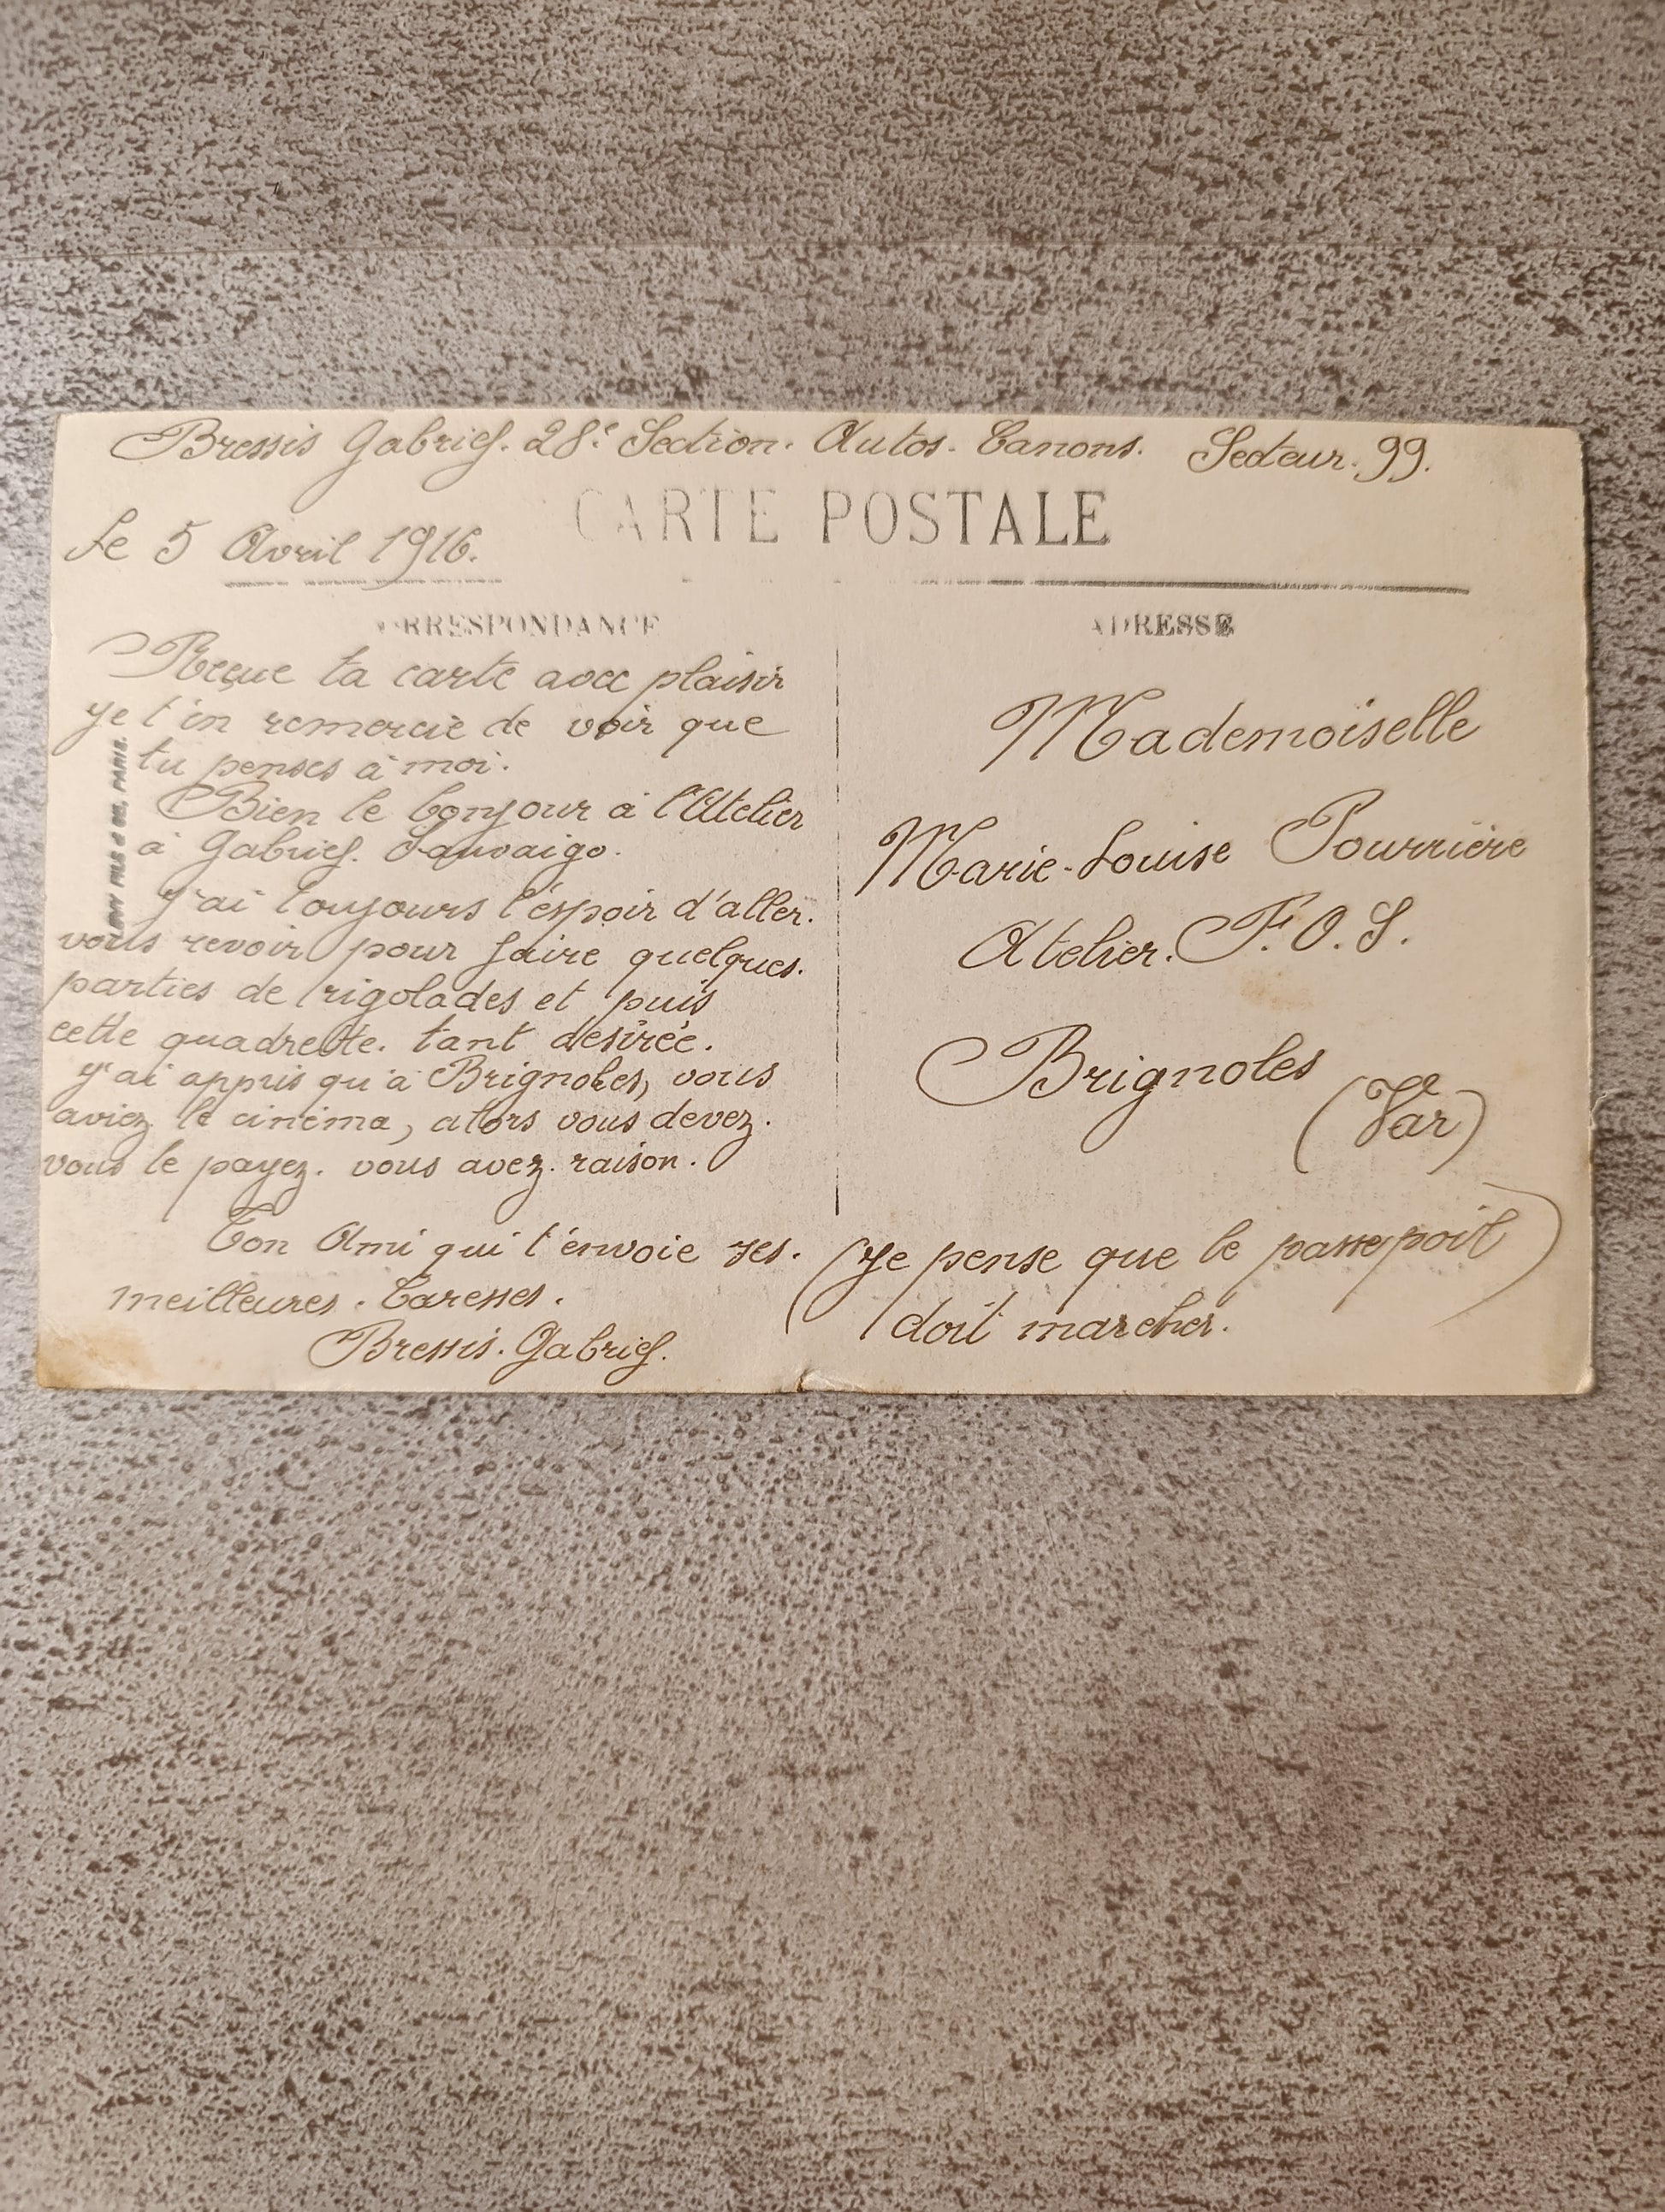 Bressis Gabriel. 28e Section. Autos. Canons. Secteur. 99.
CARTE POSTALE
Le 5 Avril 1916.
CORRESPONDANCE
Reçue ta carte avec plaisir
je t'en remercie de voir que
tu penses à moi.
Bien le bonjour à l'Atelier
à Gabriel. Sauvaigo.
J'ai toujours l'éspoir d'aller.
vous revoir pour faire quelques.
parties de rigolades et puis
cette quadrette. tant désirée.
j'ai appris qu'à Brignoles, vous
aviez le cinéma, alors vous devez.
vous le payez. vous avez. raison.
Ton Ami qui t'envoie ses.
meilleures. Caresses.
Bressis. Gabriel.
LEVY FILS & CIE, PARIS.
ADRESSE
Mademoiselle
Marie-Louise Pourrière
Atelier. F.O.S.
Brignoles
(Var)
(Je pense que le passepoil
doit marcher.)